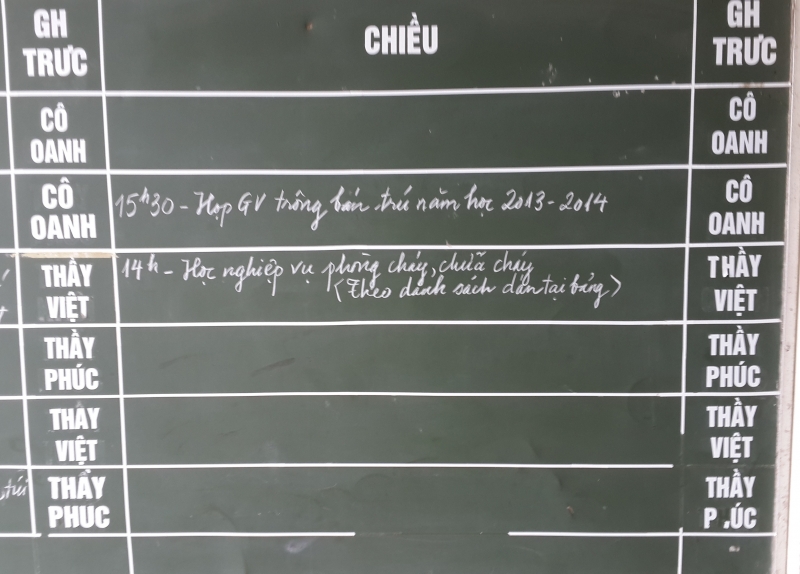 GH TRƯC
CHIỀU
GH TRƯC
CÔ OANH
CÔ OANH
CÔ OANH
15h30 - Họp GV trông bán trú năm học 2013-2014
CÔ OANH
THẦY VIỆT
14h - Học nghiệp vụ phòng cháy, chữa cháy
(Theo danh sách dán tại bảng)
THẦY VIỆT
THẦY PHÚC
THẦY PHÚC
THAY VIỆT
THẦY VIỆT
THẦY PHUC
THẦY P.ÚC